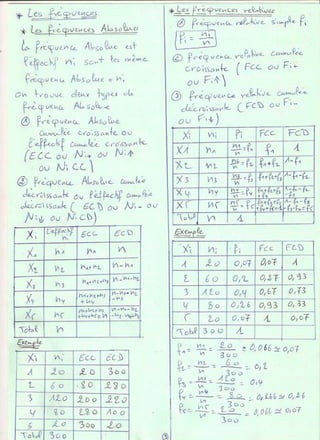 * Les fréquences
* Les fréquences Absolues
La fréquence Absolue est
l'effectif ni sont les même
fréquence Absolue = ni
On trouve deux types de
fréquence Absolue
① fréquence Absolue
cumulée croissante ou
l'effectif cumulée croissante
(ECC ou Ni↗ ou Ni↑
ou Ni CC)
② fréquence Absolue cumulée
décroissante ou l'effectif cumulée
décroissante ( ECD ou Ni↘ ou
Ni↓ ou Ni CD)
Xi | L'effectif ni | ECC | ECD
X1 | n1 | n1 | n
X2 | n2 | n1+n2 | n-n1
X3 | n3 | n1+n2+n3 | n-n1-n2
X4 | n4
Xr | nr
Total | n
Exemple
Xi | ni | ECC | ECD
1 | 20 | 20 | 300
2 | 60 | 80 | 280
3 | 120 | 200 | 220
4 | 80 | 280 | 100
5 | 20 | 300 | 20
Total | 300
* Les fréquences relatives
① fréquence relative simple fi
fi = ni/n
② fréquence relative cumulée
croissante ( FCC ou Fi↗
ou Fi↑)
③ fréquence relative cumulée
décroissante ( FCD ou Fi↘
ou Fi↓)
Xi | ni | fi | FCC | FCD
X1 | n1 | n1/n = f1 | f1 | 1
X2 | n2 | n2/n = f2 | f1+f2 | 1-f1
X3 | n3
X4 | n4
Xr | nr
Total | n | 1
Exemple
Xi | ni | fi | FCC | FCD
1 | 20 | 0,07 | 0,07 | 1
2 | 60 | 0,2 | 0,27 | 0,93
3 | 120 | 0,4 | 0,67 | 0,73
4 | 80 | 0,26 | 0,93 | 0,33
5 | 20 | 0,07 | 1 | 0,07
Total | 300 | 1
f1 = n1/n = 20/300 = 0,066 ≃ 0,07
f2 = n2/n = 60/300 = 0,2
f3 = n3/n = 120/300 = 0,4
f4 = n4/n = 80/300 = 0,266 ≃ 0,26
= 20/300 = 0,066 ≃ 0,07